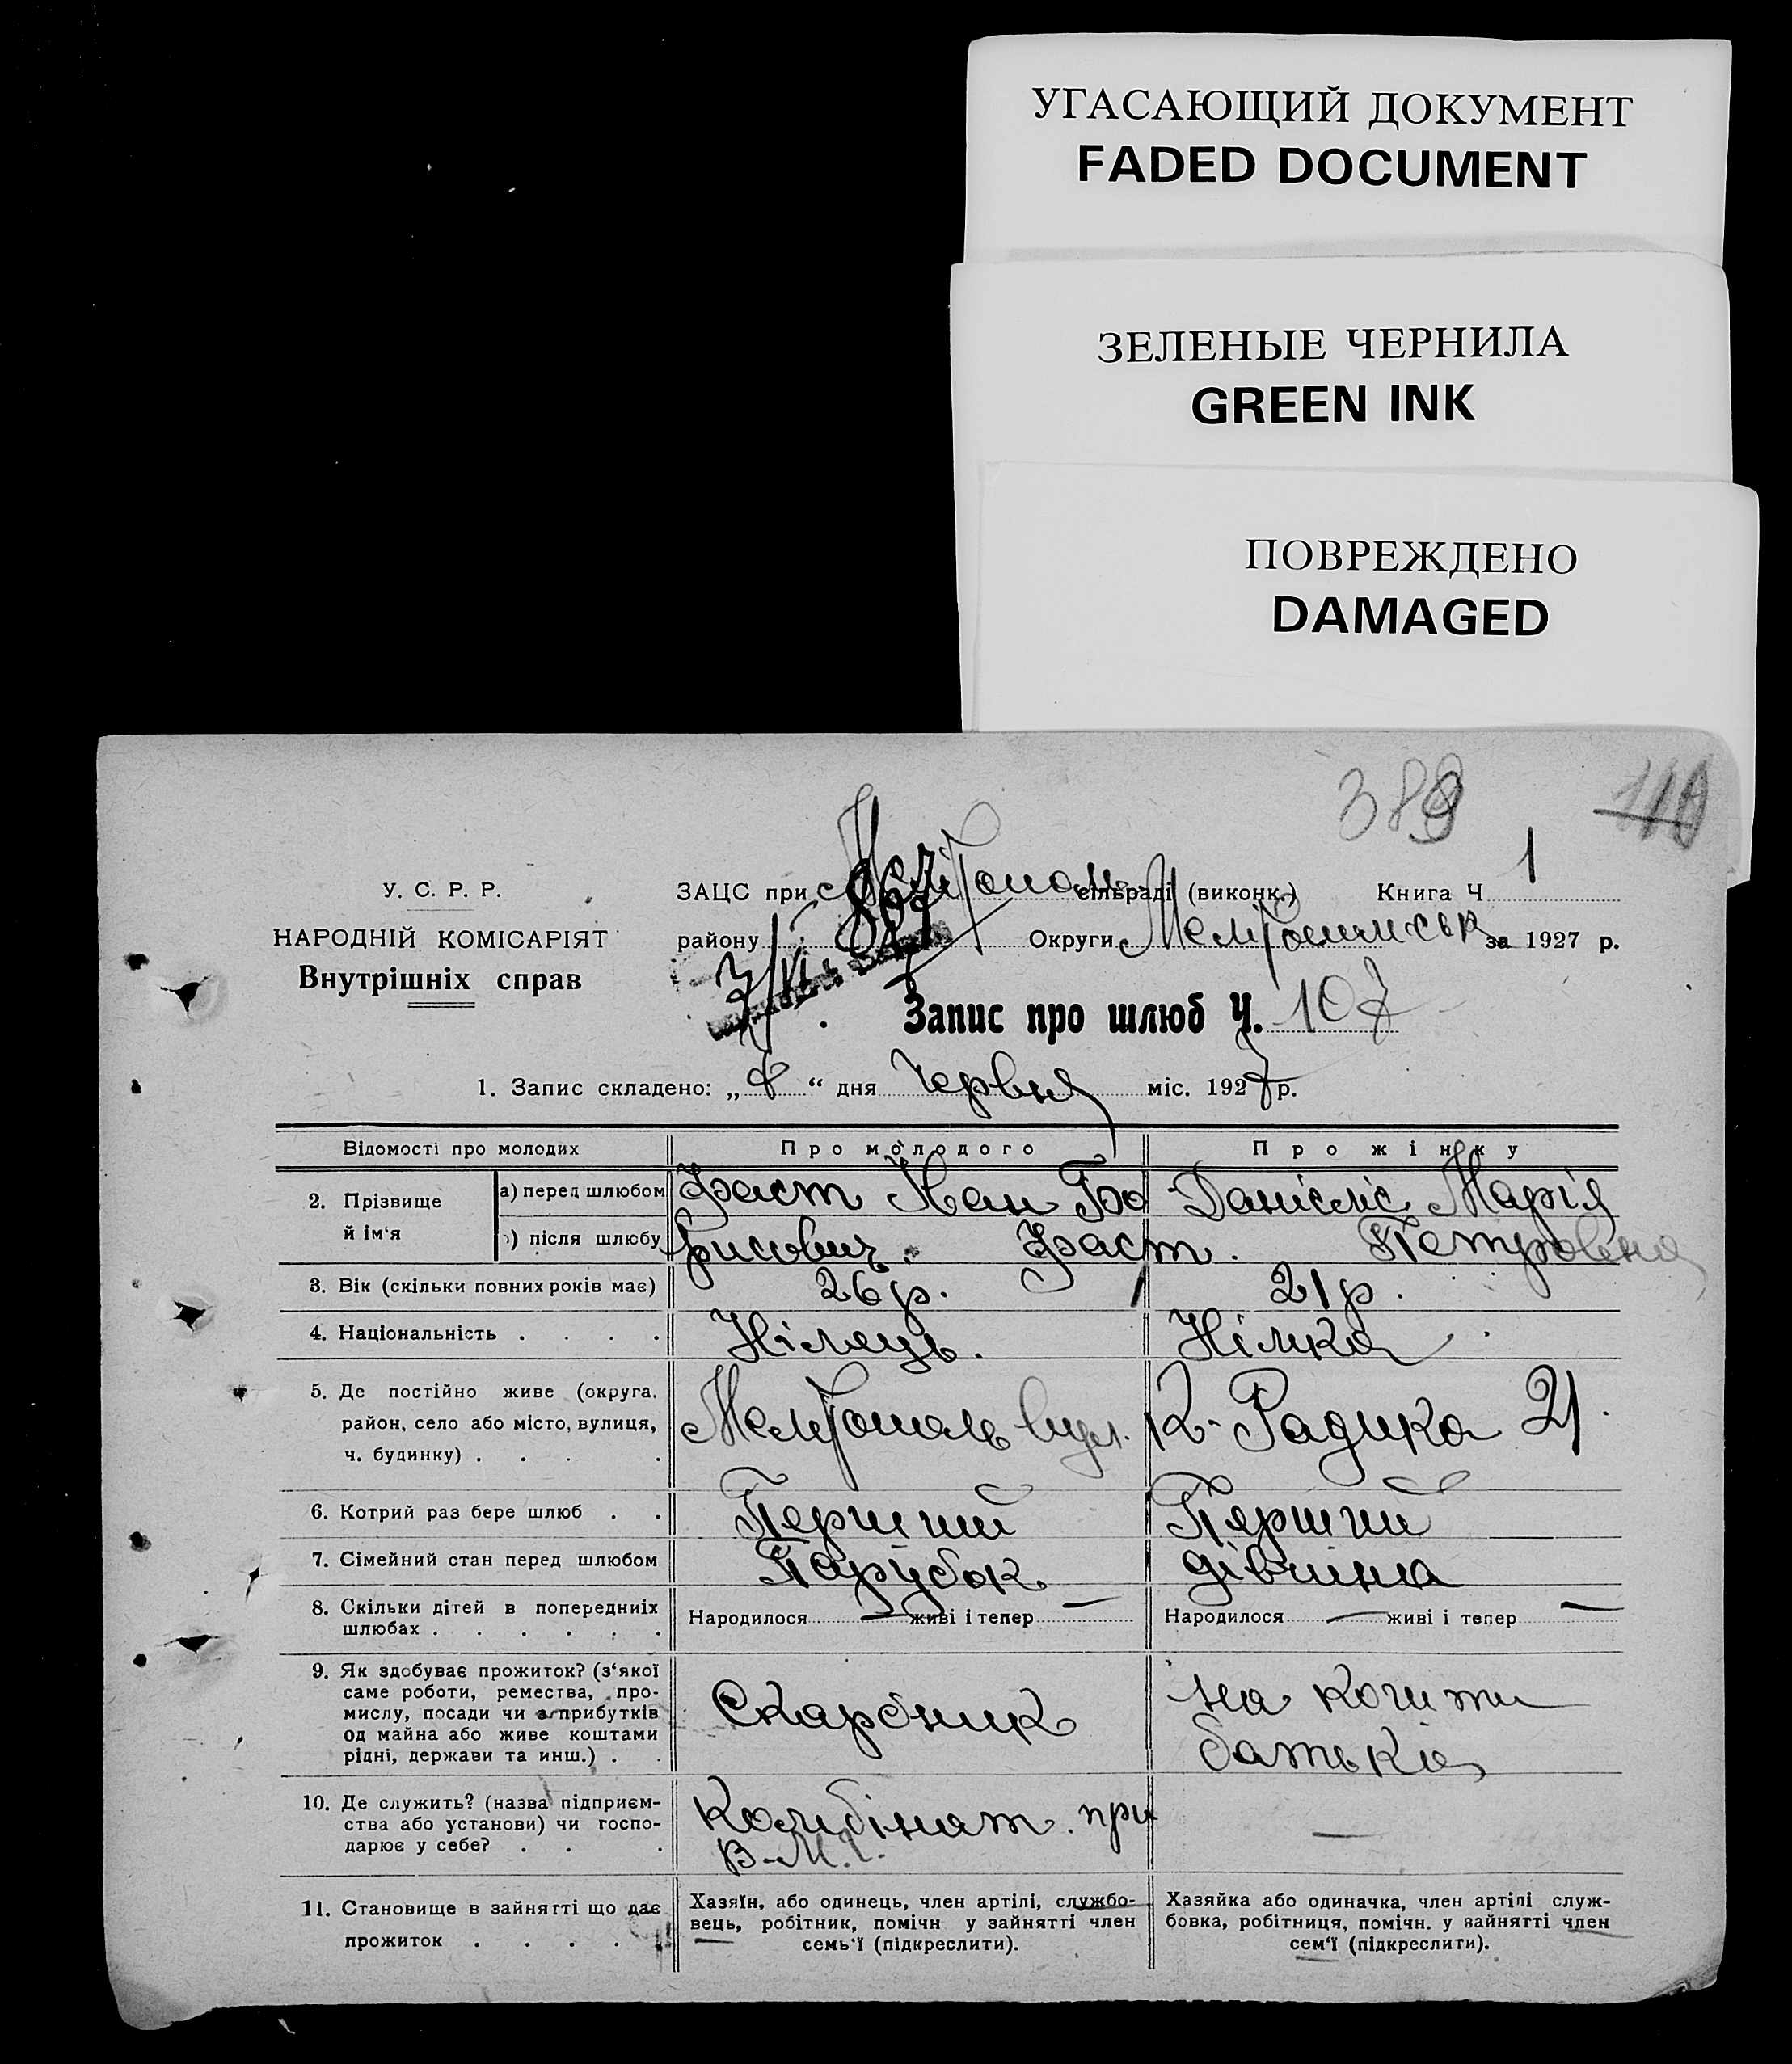 УГАСАЮЩИЙ ДОКУМЕНТ
FADED DOCUMENT
ЗЕЛЕНЫЕ ЧЕРНИЛА
GREEN INK
ПОВРЕЖДЕНО
DAMAGED
389 110
У. С. Р. Р.
НАРОДНІЙ КОМІСАРІЯТ
Внутрішніх справ
ЗАЦС при сільраді (виконк.) Книга Ч 1
району Округи за 1927 р.
867
Запис про шлюб Ч. 107
1. Запис складено: „8“ дня Червня міс. 1927 р.
Відомості про молодих Про молодого Про жінку
2. Прізвище й ім‘я
а) перед шлюбом Фаст Іван Бо Данієліс Марія
б) після шлюбу рисович. Фаст. Петровна
3. Вік (скільки повних років має) 26 р. 21 р.
4. Національність . . . . Німець. Німка
5. Де постійно живе (округа,
район, село або місто, вулиця,
ч. будинку) . . . .
Мелітополь вул. К-Радика 21
6. Котрий раз бере шлюб . . Перший Перший
7. Сімейний стан перед шлюбом Парубок дівчина
8. Скільки дітей в попередниіх
шлюбах . . . . . .
Народилося — живі і тепер — Народилося — живі і тепер —
9. Як здобуває прожиток? (з‘якої
саме роботи, ремества, про-
мислу, посади чи з прибутків
од майна або живе коштами
рідні, держави та инш.) . .
Скарбник
на кошти
батьків
10. Де служить? (назва підприєм-
ства або установи) чи госпо-
дарює у себе? . . .
Комбінат. при —
11. Становище в зайнятті що дає
прожиток . . . .
Хазяїн, або одинець, член артілі, службо-
вець, робітник, помічн у зайнятті член
семь‘ї (підкреслити).
Хазяйка або одиначка, член артілі служ-
бовка, робітниця, помічн. у зайнятті член
сем‘ї (підкреслити).